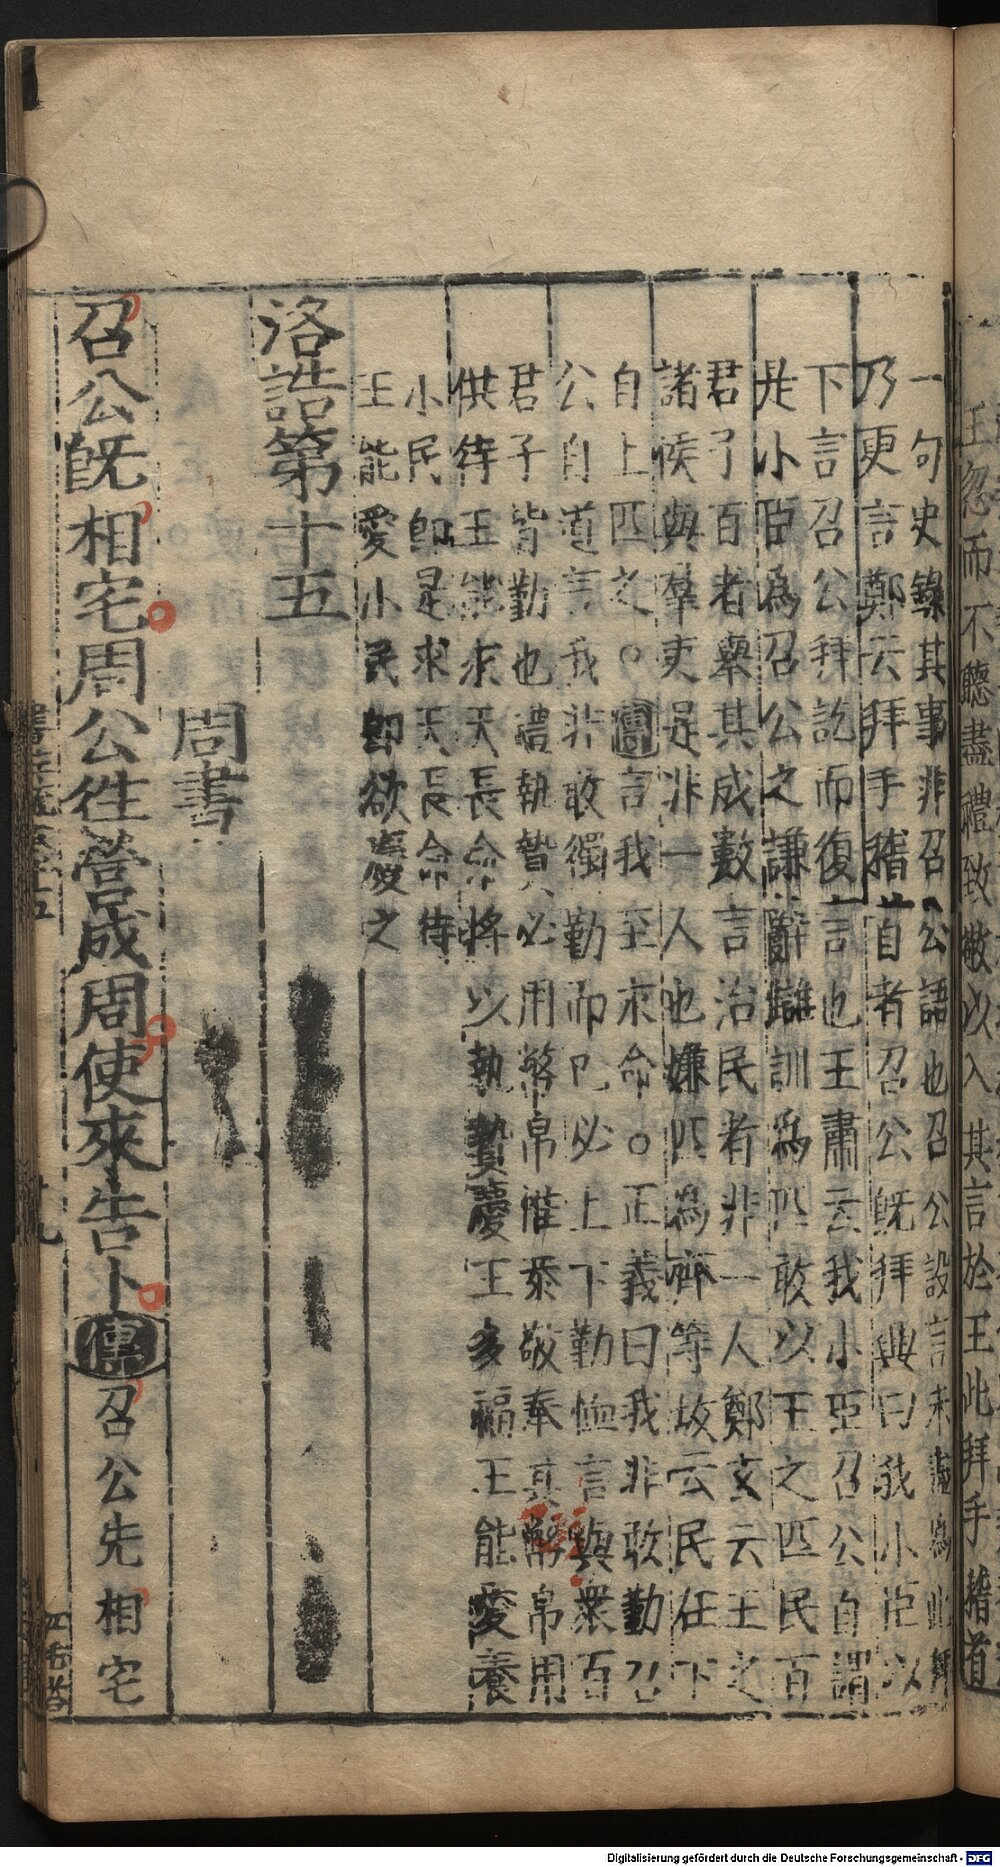 王忽而不聽盡禮致敬以入其言於王此拜手稽首
一句史錄其事非召公語也召公設言未盡為此拜
乃更言鄭云拜手稽首者召公既拜興曰我小臣以
下言召公拜訖而復言也王肅云我小臣召公自謂
是小臣為召公之謙辭讎訓為匹敢以王之匹民百
君子百者舉其成數言治民者非一人鄭玄云王之
諸侯與羣吏是非一人也嫌匹為齊等故云民在下
自上匹之○傳言我至求命○正義曰我非敢勤召
公自道言我非敢獨勤而已必上下勤恤言與眾百
君子皆勤也禮執贄必用幣帛惟恭敬奉其幣帛用
供待王能求天長命將以執贄慶王多福王能愛養
小民即是求天長命待
王能愛小民即欲慶之
洛誥第十五
周書
召公既相宅周公往營成周使來告卜傳召公先相宅
Digitalisierung gefördert durch die Deutsche Forschungsgemeinschaft - DFG